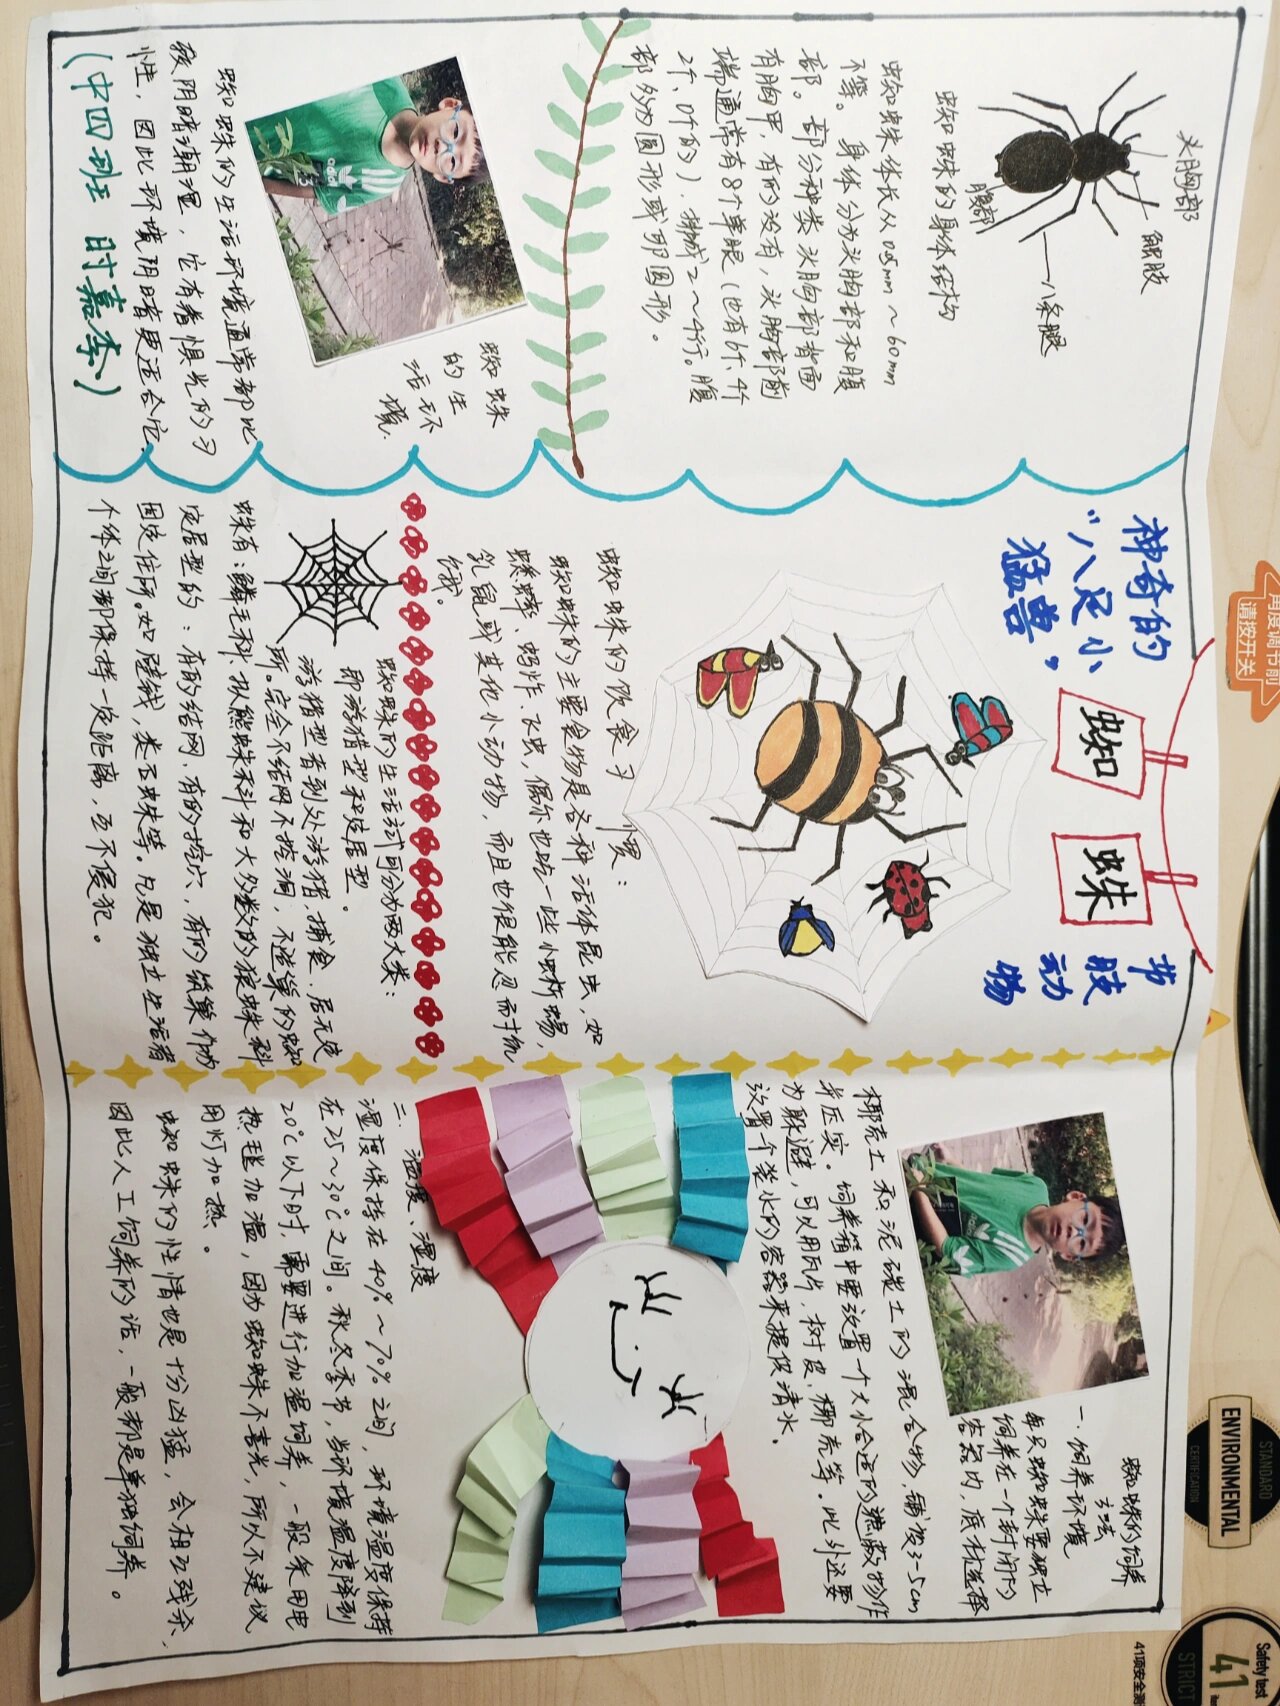 头胸部
触肢
八条腿
腹部
蜘蛛的身体结构
蜘蛛体长从0.05mm~60mm
不等。身体分为头胸部和腹
部。部分种类头胸部背面
有胸甲,有的没有,头胸部前
端通常有8个单眼(也有6个、4个
2个、0个的),排成2~4行。腹
部多为圆形或卵圆形。
蜘蛛
的生
活环
境
蜘蛛的生活环境通常都比
较阴暗潮湿,它有着惧光的习
性,因此环境阴暗更适合它
(中四班 时嘉李)
神奇的
“八足小
猛兽”
蜘
蛛
节
肢
动
物
蜘蛛的饮食习惯:
蜘蛛的主要食物是各种活体昆虫,如
蟋蟀、蚂蚱、飞虫,偶尔也吃一些小蜥蜴、
乳鼠或其他小动物,而且也很能忍耐饥
饿。
蜘蛛的生活方式可分为两大类:
即游猎型和定居型。
游猎型者到处游猎、捕食、居无定
所。完全不结网不挖洞,不造巢的蜘
蛛有:鳞毛科、拟熊蛛科和大多数的狼蛛科
定居型的:有的结网,有的挖穴,有的筑巢作为
固定住所。如壁钱,类石蛛等。凡是独立生活者
个体之间都保持一定距离,互不侵犯。
蜘蛛的饲养
方法
一.饲养环境
每只蜘蛛要独立
饲养在一个封闭的
容器内,底材选择
椰壳土和泥碳土的混合物,铺设3-5cm
并压实。饲养箱中要设置一个大小合适的遮蔽物作
为躲避,可以用瓦片、树皮、椰壳等。此外还要
设置个装水的容器来提供清水。
二.温度、湿度
湿度保持在40%~70%之间,环境温度保持
在25~30℃之间。秋冬季节,当环境温度降到
20℃以下时,需要进行加温饲养,一般采用电
热毯加温,因为蜘蛛不喜光,所以不建议
用灯加热。
蜘蛛的性情也是十分凶猛,会相互残杀,
因此人工饲养的话,一般都是单独饲养。
角度调节前
请按开关
STANDARD
ENVIRONMENTAL
CERTIFICATION
Safety test
41
STRIC
41项安全测